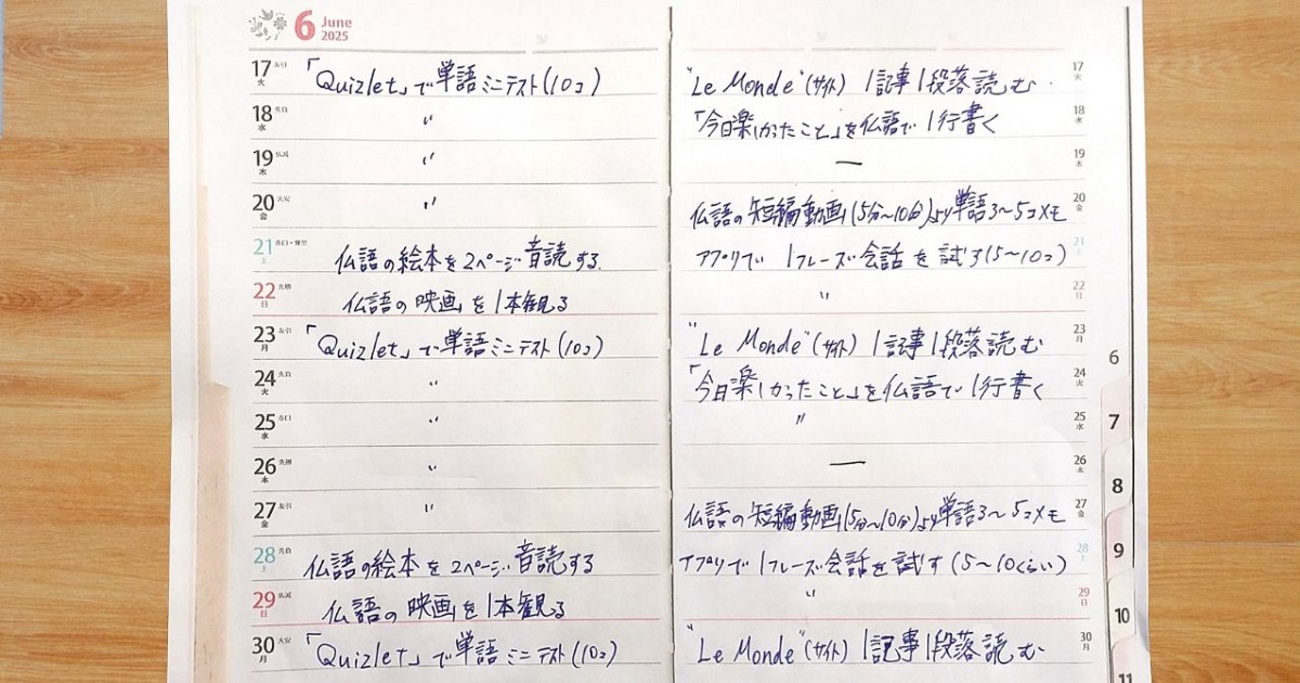 6 June
2025
17 火 友引 「Quizlet」で単語ミニテスト(10コ)
18 水 先負 〃
19 木 仏滅 〃
20 金 大安 〃
21 土 赤口・夏至 仏語の絵本を2ページ音読する.
22 日 先勝 仏語の映画を1本観る
23 月 友引 「Quizlet」で単語ミニテスト(10コ)
24 火 先負 〃
25 水 赤口 〃
26 木 先勝 〃
27 金 友引 〃
28 土 先負 仏語の絵本を2ページ音読する
29 日 仏滅 仏語の映画を1本観る
30 月 大安 「Quizlet」で単語ミニテスト(10コ)
"Le Monde"(サイト) 1記事1段落読む. 17 火
「今日楽しかったこと」を仏語で1行書く 18 水
ー 19 木
仏語の短編動画(5分〜10分)より単語3〜5コメモ 20 金
アプリで1フレーズ会話を試す(5〜10コ) 21 土
〃 22 日
"Le Monde"(サイト) 1記事1段落読む 23 月
「今日楽しかったこと」を仏語で1行書く 24 火
〃 25 水
ー 26 木
仏語の短編動画(5分〜10分)より単語3〜5コメモ 27 金
アプリで1フレーズ会話を試す(5〜10くらい) 28 土
〃 29 日
"Le Monde"(サイト) 1記事1段落読む 30 月
6
7
8
9
10
11